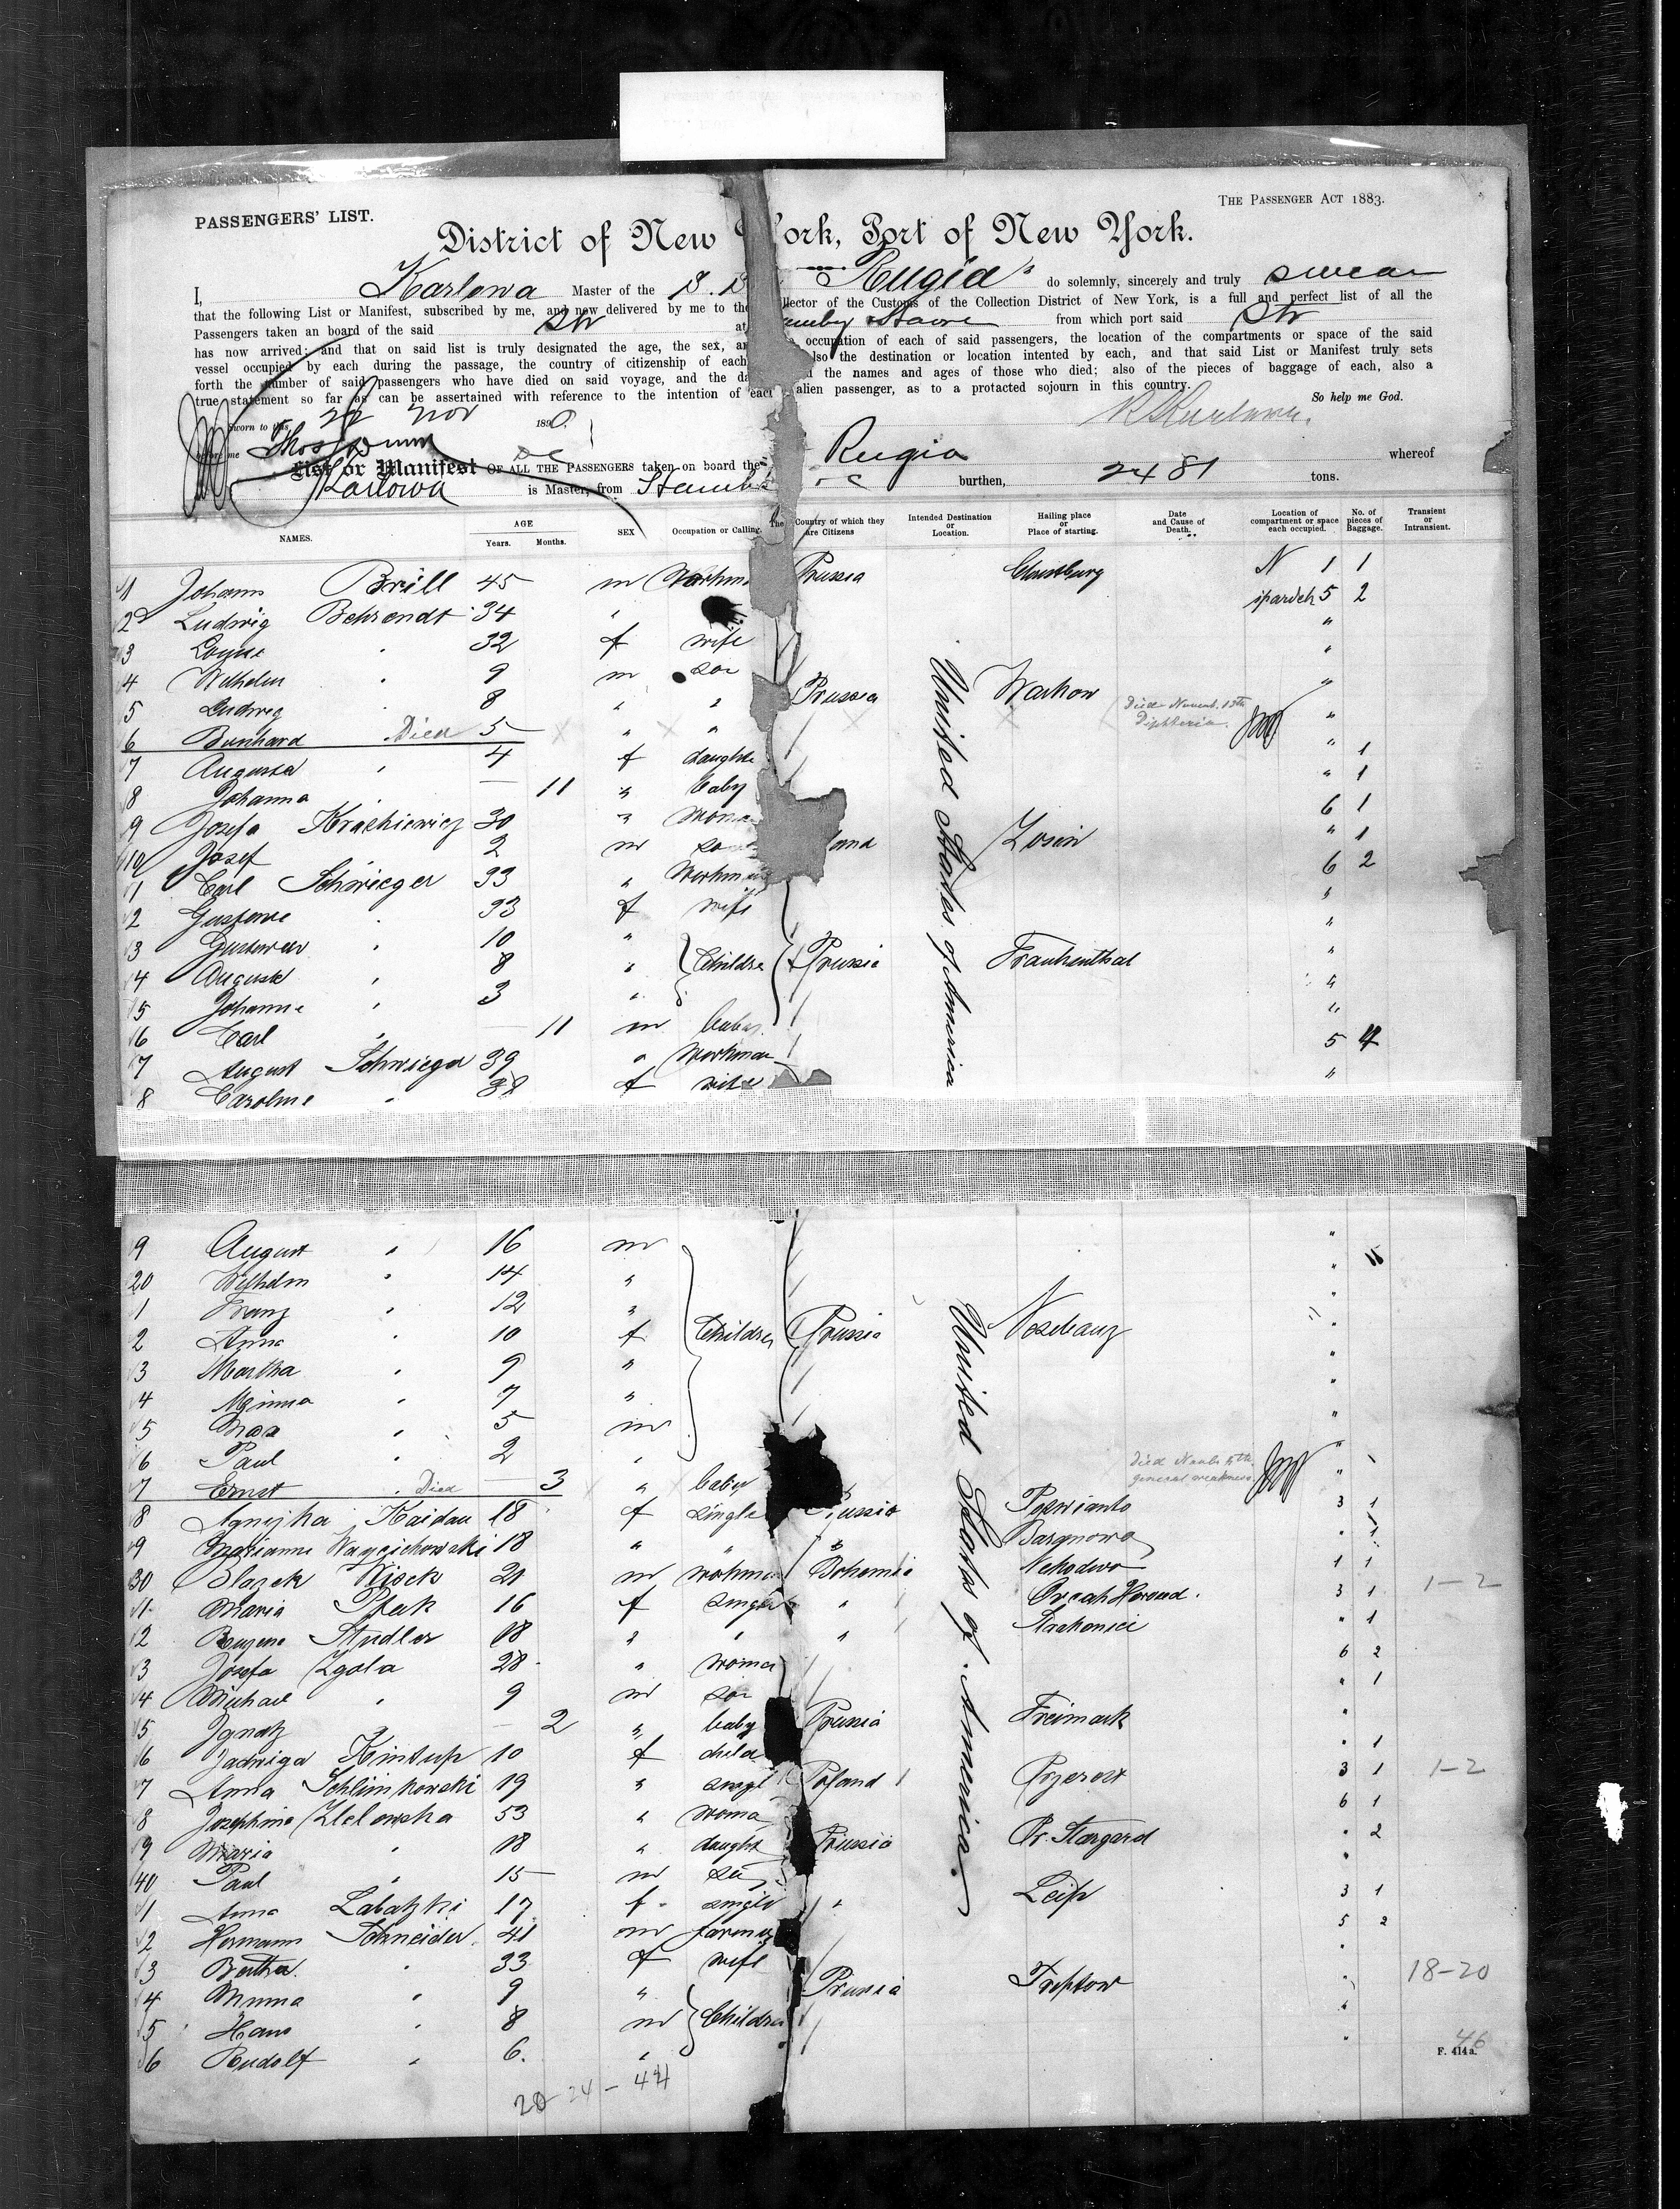 PASSENGERS' LIST.
THE PASSENGER ACT 1883.
District of New York, Port of New York.
I, Karlowa Master of the S. S. Rugia do solemnly, sincerely and truly swear
that the following List or Manifest, subscribed by me, and now delivered by me to the llector of the Customs of the Collection District of New York, is a full and perfect list of all the
Passengers taken an board of the said Str at Havre from which port said Str
has now arrived; and that on said list is truly designated the age, the sex, an occupation of each of said passengers, the location of the compartments or space of the said
vessel occupied by each during the passage, the country of citizenship of each also the destination or location intented by each, and that said List or Manifest truly sets
forth the number of said passengers who have died on said voyage, and the da the names and ages of those who died; also of the pieces of baggage of each, also a
true statement so far as can be ascertained with reference to the intention of each alien passenger, as to a protacted sojourn in this country.
So help me God.
Sworn to this Nov 1890.
before me Thos Dunn
List or Manifest OF ALL THE PASSENGERS taken on board the Rugia whereof
Karlowa is Master, from burthen, 2481 tons.
NAMES. AGE Years. Months. SEX Occupation or Calling. The Country of which they are Citizens Intended Destination or Location. Hailing place or Place of starting. Date and Cause of Death. Location of compartment or space each occupied. No. of pieces of Baggage. Transient or Intransient.
United States of America
1 Johann Brill 45 m Workma Prussia Christburg N 1 1
2 Ludwig Behrendt 34 " 5 2
3 Louise " 32 f wife "
4 Wilhelm " 9 m son "
5 Ludwig 8 " " Prussia Warkow "
6 Bernhard Died 5 " " Died Novemb. 13th Diphteria "
7 Augusta " 4 f daughte " 1
8 Johanna " 11 " baby " 1
9 Josefa Krackiewicz 30 " Woma 6 1
10 Josef 2 m so land Zosin " 1
1 Carl Schwieger 33 " Workma 6 2
2 Gustave " 33 f wife "
3 " 10 " "
4 August " 8 " Childre Prussia Frauhenthal "
5 Johanna " 3 " "
6 Carl " 11 m baby "
7 August Schwieger 39 " Workman 5 4
8 Caroline " 38 f wife "
9 August " 16 m "
20 Wilhelm " 14 " "
1 Franz " 12 " "
2 Anna " 10 f Childre Prussia "
3 Martha " 9 " "
4 Minna " 7 " "
5 Max " 5 m "
6 Paul " 2 " "
7 Ernst " Died 3 " baby general weakness "
8 Kaidau 18 f single Prussia 3 1
9 Marianna 18 " " " " 1
30 Blazek 21 m workma Bohemia 1 1
1 Maria Ptak 16 f single " 3 1 1-2
2 Studler 18 " " " Strakonici " 1
3 Josefa Zgola 28 " woma 6 2
4 Michael " 9 m son " 1
5 Ignatz 2 " baby Prussia Freimark "
6 Jadwiga Kintup 10 f child " 1
7 Anna Schlimkowski 19 " singl Poland 3 1 1-2
8 Josephina Zlelowska 53 " woma 6 1
9 Maria " 18 " daught Prussia Pr. Stargard " 2
40 Paul " 15 m "
1 Anna Labatzki 17 f single " Leip 3 1
2 Hermann Schneider 41 m farmer 5 2
3 Bertha " 33 f wife "
4 Minna " 9 " Prussia Treptow " 18-20
5 Hans " 8 m Childre "
6 Rudolf " 6 " "
46
F. 414a.
20 24 - 44